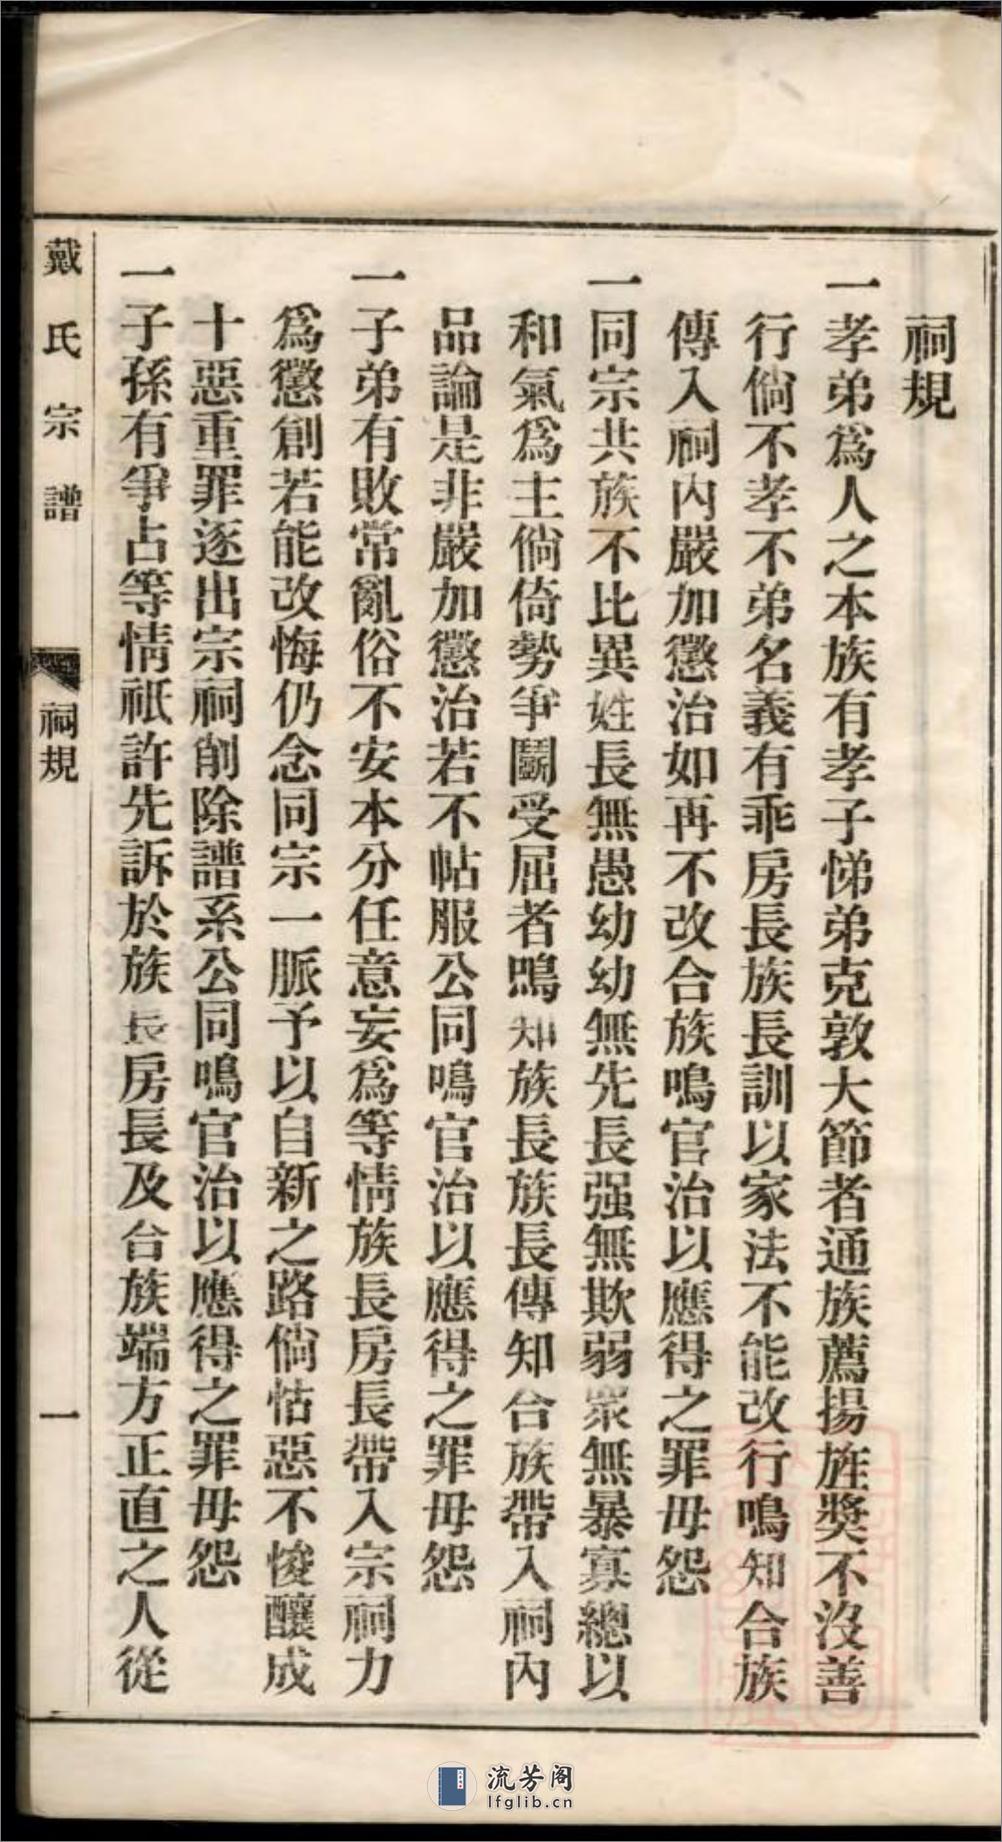 祠規
一孝弟爲人之本族有孝子悌弟克敦大節者通族薦揚旌奬不沒善
行倘不孝不弟名義有乖房長族長訓以家法不能改行鳴知合族
傳入祠內嚴加懲治如再不改合族鳴官治以應得之罪毋怨
一同宗共族不比異姓長無愚幼幼無先長强無欺弱衆無暴寡總以
和氣爲主倘倚勢爭鬭受屈者鳴知族長族長傳知合族帶入祠內
品論是非嚴加懲治若不帖服公同鳴官治以應得之罪毋怨
一子弟有敗常亂俗不安本分任意妄爲等情族長房長帶入宗祠力
爲懲創若能改悔仍念同宗一脈予以自新之路倘怙惡不悛釀成
十惡重罪逐出宗祠削除譜系公同鳴官治以應得之罪毋怨
一子孫有爭占等情祇許先訴於族長房長及合族端方正直之人從
戴氏宗譜
祠規
一
流芳阁
lfglib.cn